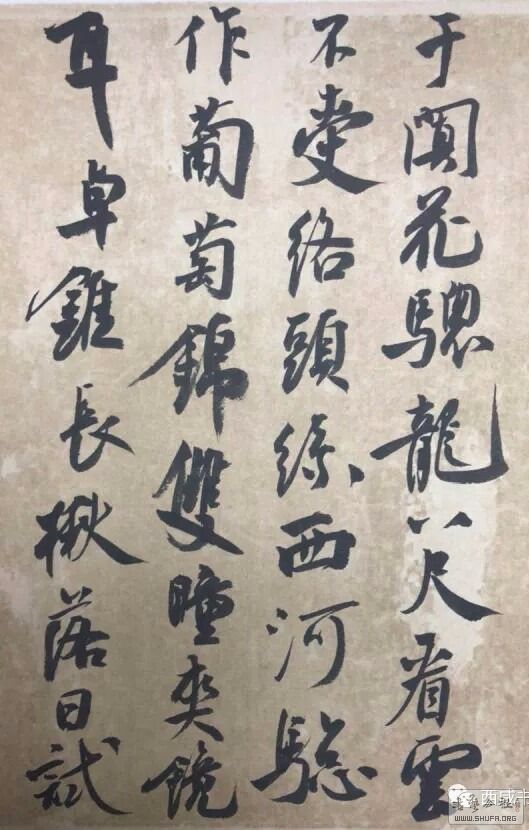 于闐花驄龍八尺看雲
不受絡頭絲西河驄
作葡萄錦雙瞳夾鏡
耳卓錐長楸落日試
西咸
書藝公社
WWW.SHUFA.ORG